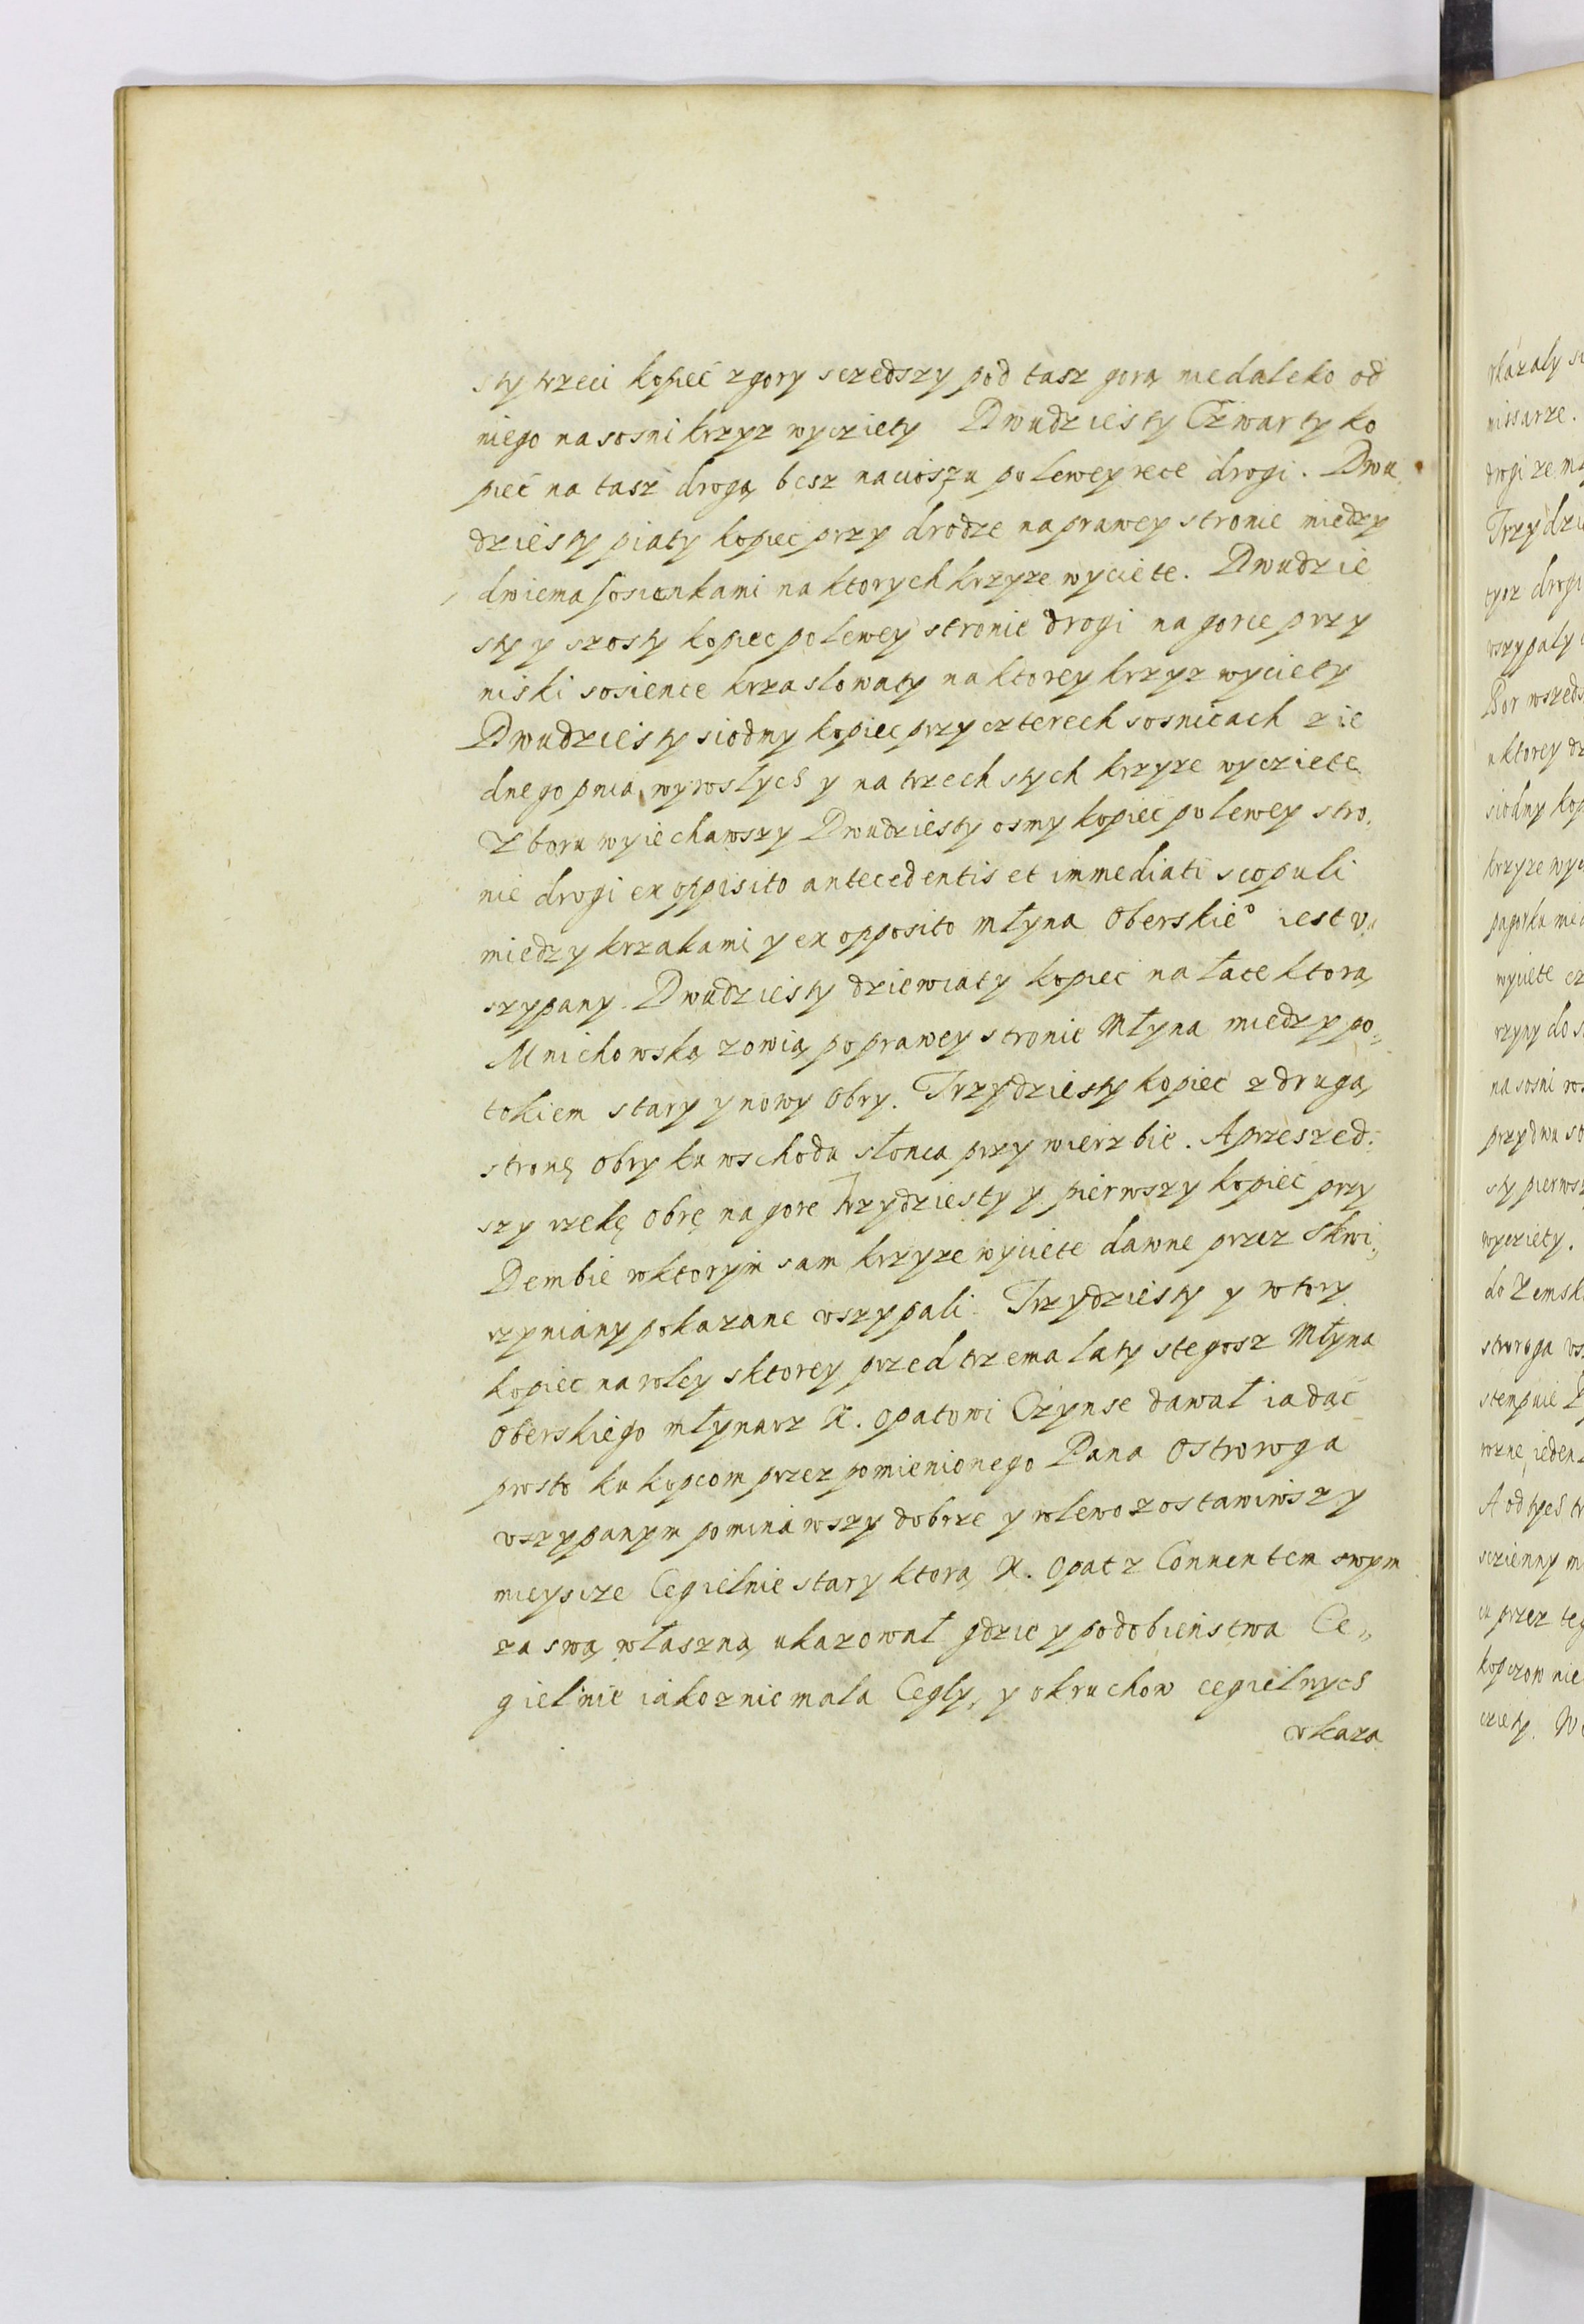 sty trzeci kopieć z gory szedszy pod tasz gorą niedaleko od
niego na sosni krzyz wycziety Dwudziesty Czwarty ko
pieć na tasz drogą besz nacioszu po lewey rece drogi. Dwu
dziesty piaty kopiec przy drodze na prawey stronie miedzy
dwiema sosionkami na ktorych krzyze wyciete. Dwudzie
sty y szosty kopiec po lewey stronie drogi na gorce przy
niski sosience krzaslowaty na ktorey krzyz wyciety
Dwudziesty siodmy kopiec przy czterech sosnicach z ie
dnego pnia wyroslych y na trzech stych krzyze wycziete
Z boru wyiechawszy Dwudziesty osmy kopieć po lewey stro,
nie drogi ex oppisito antecedentis et immediati scopuli
miedzy krzakami y ex opposito młyna Oberskie° iest v„
szypany. Dwudziesty dziewiaty kopieć na łace ktorą
Mnichowską zowią po prawey stronie Młyna miedzy po„
tokiem stary y nowy Obry. Trzydziesty kopiec z drugą
stronę Obry ku wschodu słonca przy wierzbie. A przeszed„
szy rzekę Obrę na gore trzydziesty y pierwszy kopieć przy
Dembie w ktorym sam krzyze wyciete dawne przez Skwi„
rzyniany pokazane vszypali. Trzydziesty y wtory
kopiec na roley sktorey przed trzema laty stegosz Młyna
Oberskiego młynarz X. Opatowi Czynse dawał iadać
prosto ku kopcom przez pomienionego Pana Ostroroga
vszypanym pominawszy dobrze y wlewo zostawiwszy
mieyscze Cegielnie stary ktorą X. Opat z Connentem swym
za swą właszną ukazował gdzie y podobieństwa Ce„
gielnie iakoz nie mala Cegly, y okruchow cegielnych
vkaza